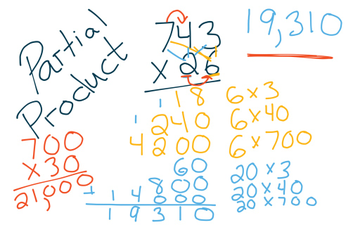 Partial
Product
743
× 26
1 18
1 240
4200
60
800
1 14000
19310
19,310
6×3
6×40
6×700
20×3
20×40
20×700
700
×30
21,000